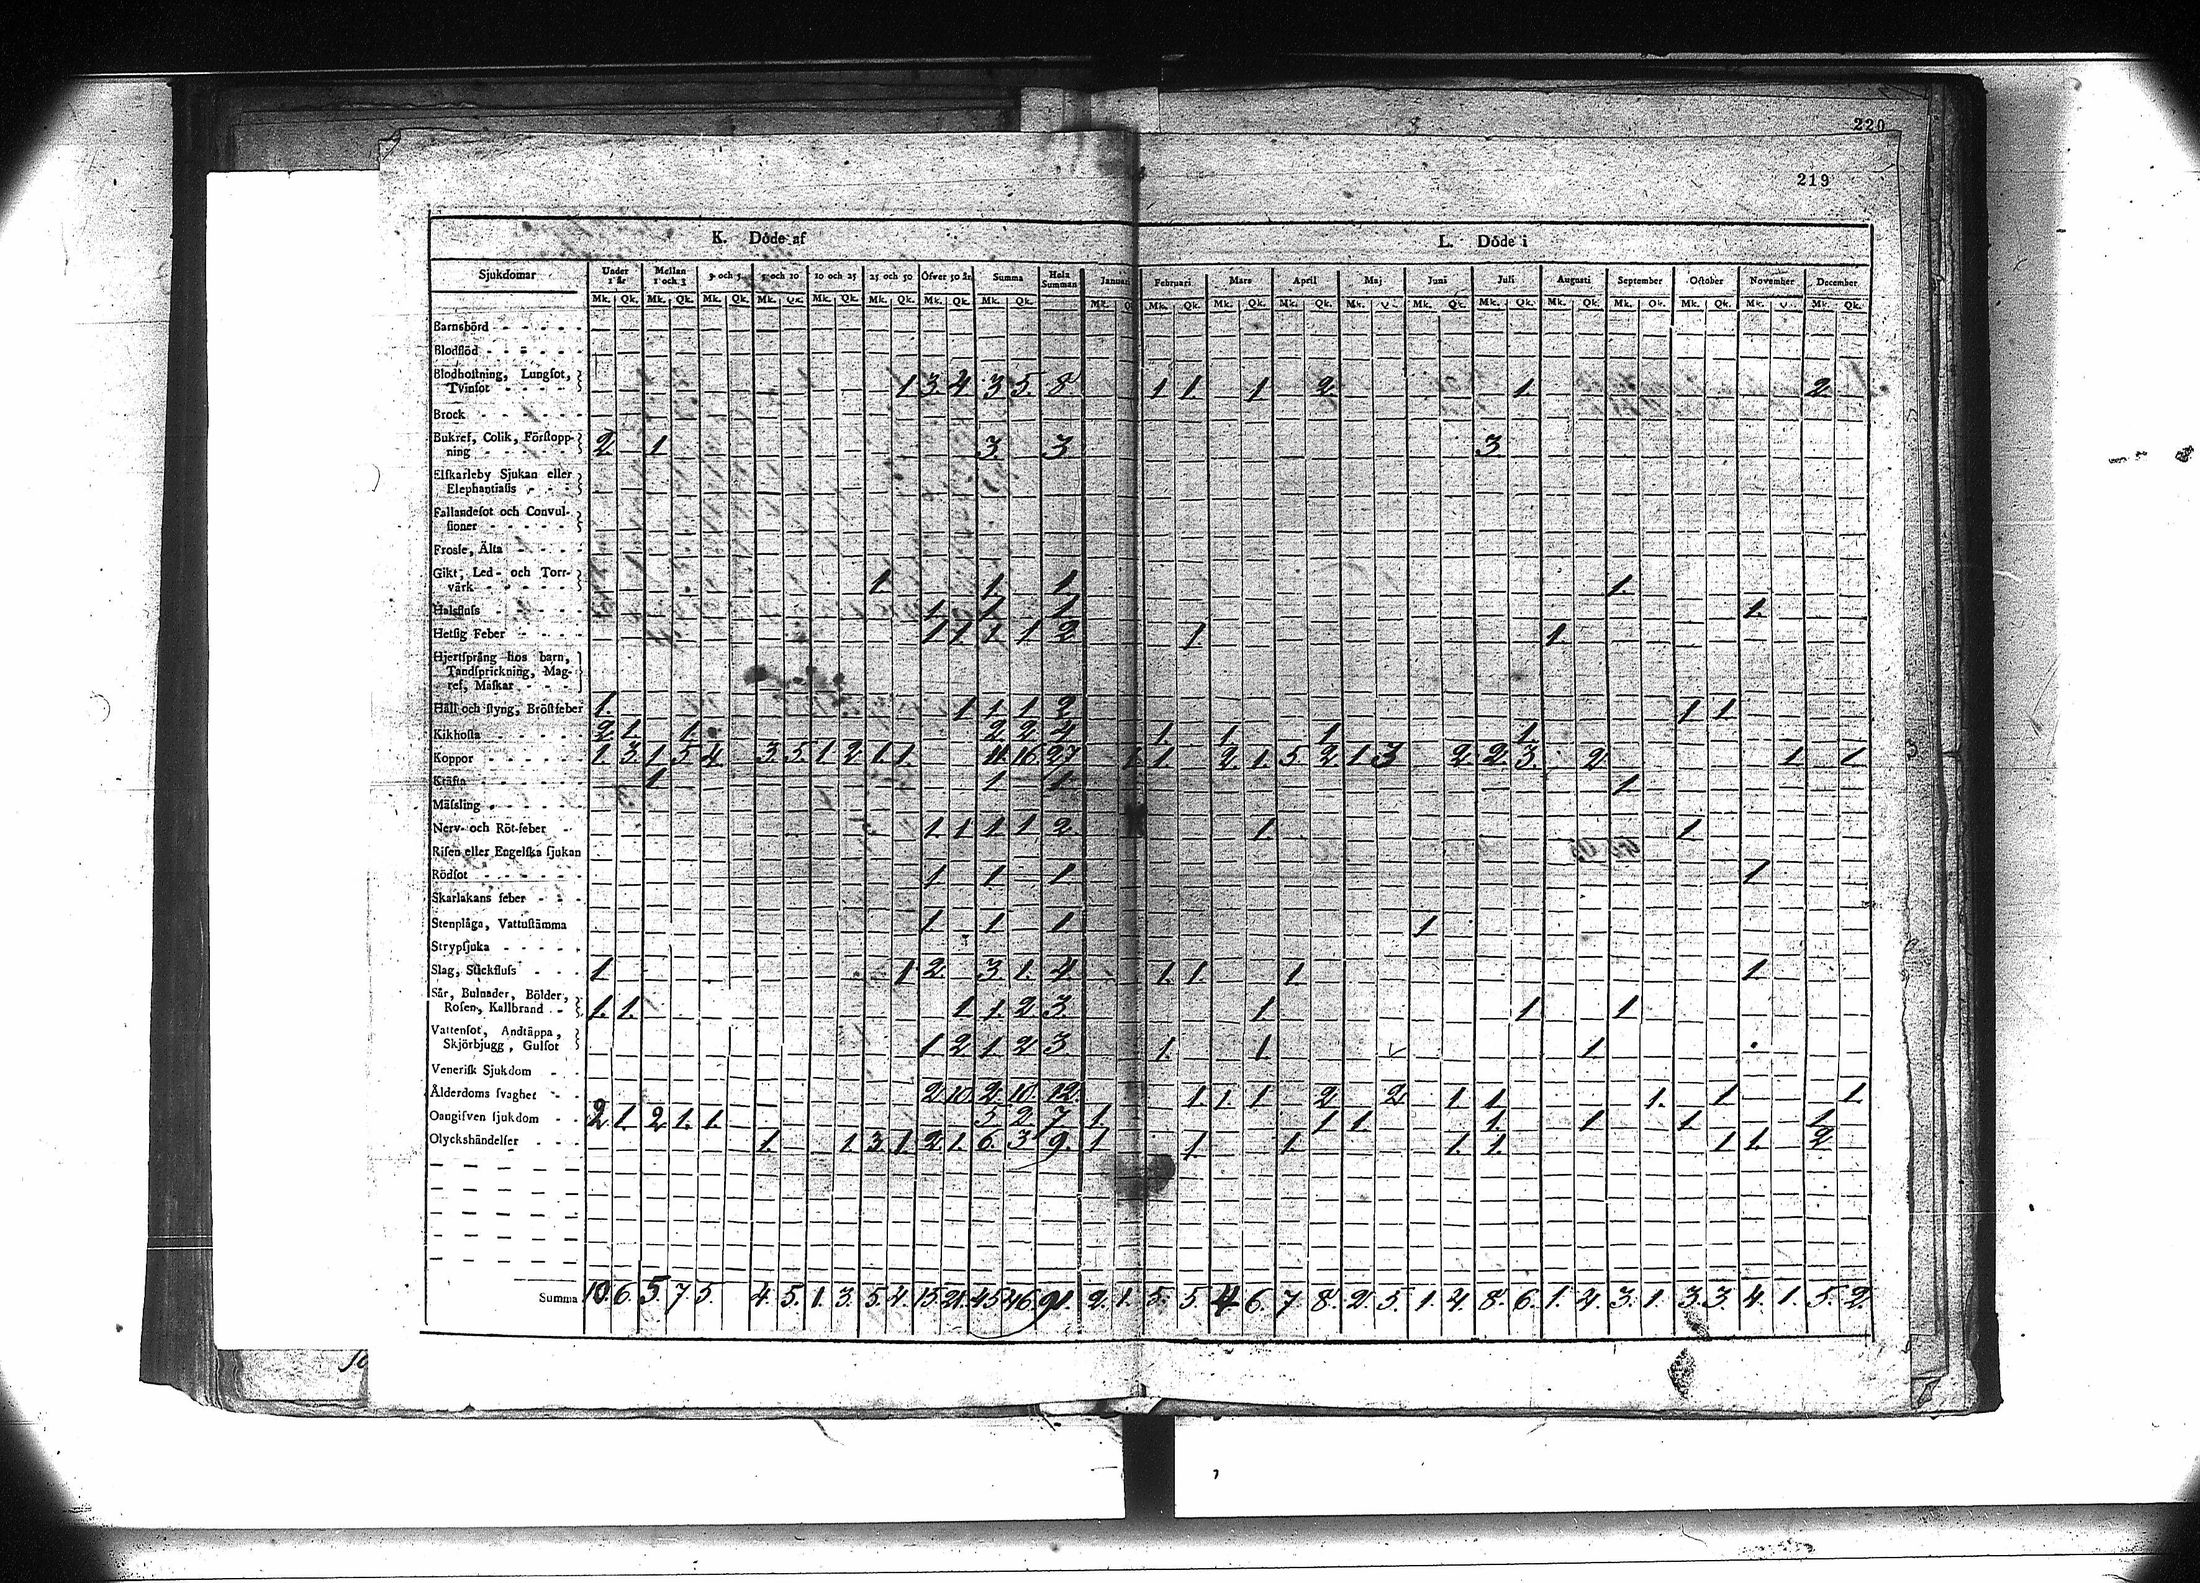 220
219
K. Döde af
L. Döde i
Sjukdomar Under 1 år Mellan 1 och 3 3 och 5 5 och 10 10 och 25 25 och 50 Öfver 50 år Summa Hela Summan Januari Februari Mars April Maj Juni Juli Augusti September October November December
Mk. Qk. Mk. Qk. Mk. Qk. Mk. Qk. Mk. Qk. Mk. Qk. Mk. Qk. Mk. Qk. Mk. Mk. Qk. Mk. Qk. Mk. Qk. Mk. Mk. Qk. Mk. Qk. Mk. Qk. Mk. Mk. Qk. Mk. Mk. Qk.
Barnsbörd
Blodflöd
Blodhostning, Lungsot,
Tvinsot 1 3. 4 3 5. 8. 1 1. 1 2. 1. 2.
Brock
Bukref, Colik, Förstopp-
ning 2. 1 3. 3 3.
Elskarleby Sjukan eller
Elephantiasis
Fallandesot och Convul-
sioner
Frossa, Älta
Gikt, Led- och Torr-
värk 1. 1 1 1.
Halsfluss 1. 1. 1. 1.
Hetsig Feber 1 1. 1 1 2 1. 1.
Hjertsprång hos barn,
Tandsprickning, Mag-
ref, Maskar
Håll och styng, Bröstfeber 1. 1 1. 1 2 1 1.
Kikhosta 2 1. 1. 2. 2. 4 1. 1. 1. 1.
Koppor 1. 3. 1. 5 4 3. 5. 1 2. 1. 1. 11. 16. 27 1. 1. 2. 1. 5. 2 1 3. 2. 2. 3. 2. 1. 1.
Kräfta 1 1 1. 1
Mässling
Nerv- och Röt-feber 1. 1 1 1 2. 1. 1.
Risen eller Engelska sjukan
Rödsot 1 1 1 1
Skarlakans feber
Stenplåga, Vattustämma 1 1. 1 1
Strypsjuka
Slag, Stickfluss 1. 1 2. 3. 1. 4 1. 1. 1. 1.
Sår, Bulnader, Bölder,
Rosen, Kallbrand 1. 1. 1. 1. 2 3. 1 1 1
Vattensot, Andtäppa,
Skjörbjugg, Gulsot 1 2 1. 2 3. 1. 1. 1
Venerisk Sjukdom
Ålderdoms svaghet 2. 10. 2. 10. 12. 1. 1. 1 2 2. 1. 1 1. 1 1.
Oangifven sjukdom 2. 1. 2 1. 1. 5 2. 7 1. 1 1. 1. 1 1. 1.
Olyckshändelser 1. 1. 3. 1. 2. 1. 6. 3 9. 1 1. 1. 1. 1. 1 1. 2.
Summa 10. 6. 5. 7 5. 4. 5. 1. 3. 5. 4. 15. 21. 45 46. 91. 2. 1. 5. 5. 4 6. 7 8. 2. 5. 1. 4. 8. 6. 1. 4. 3. 1. 3. 3. 4. 1. 5. 2.